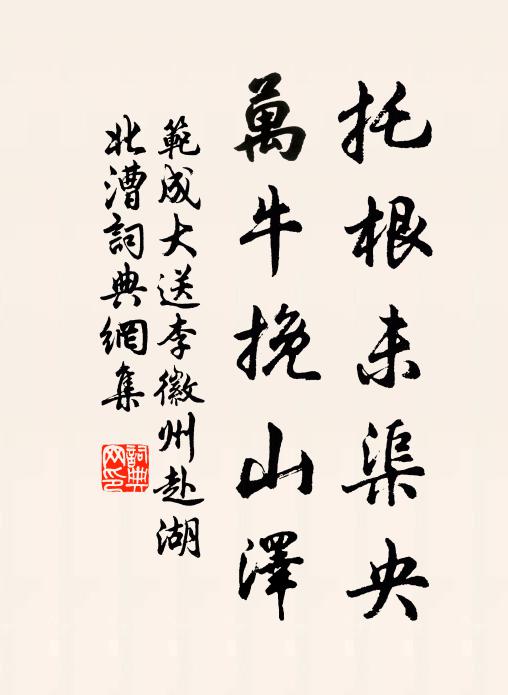 托根未渠央
萬牛挽山澤
範成大送李徽州赴湖
北漕詞典網集
詞典
网印